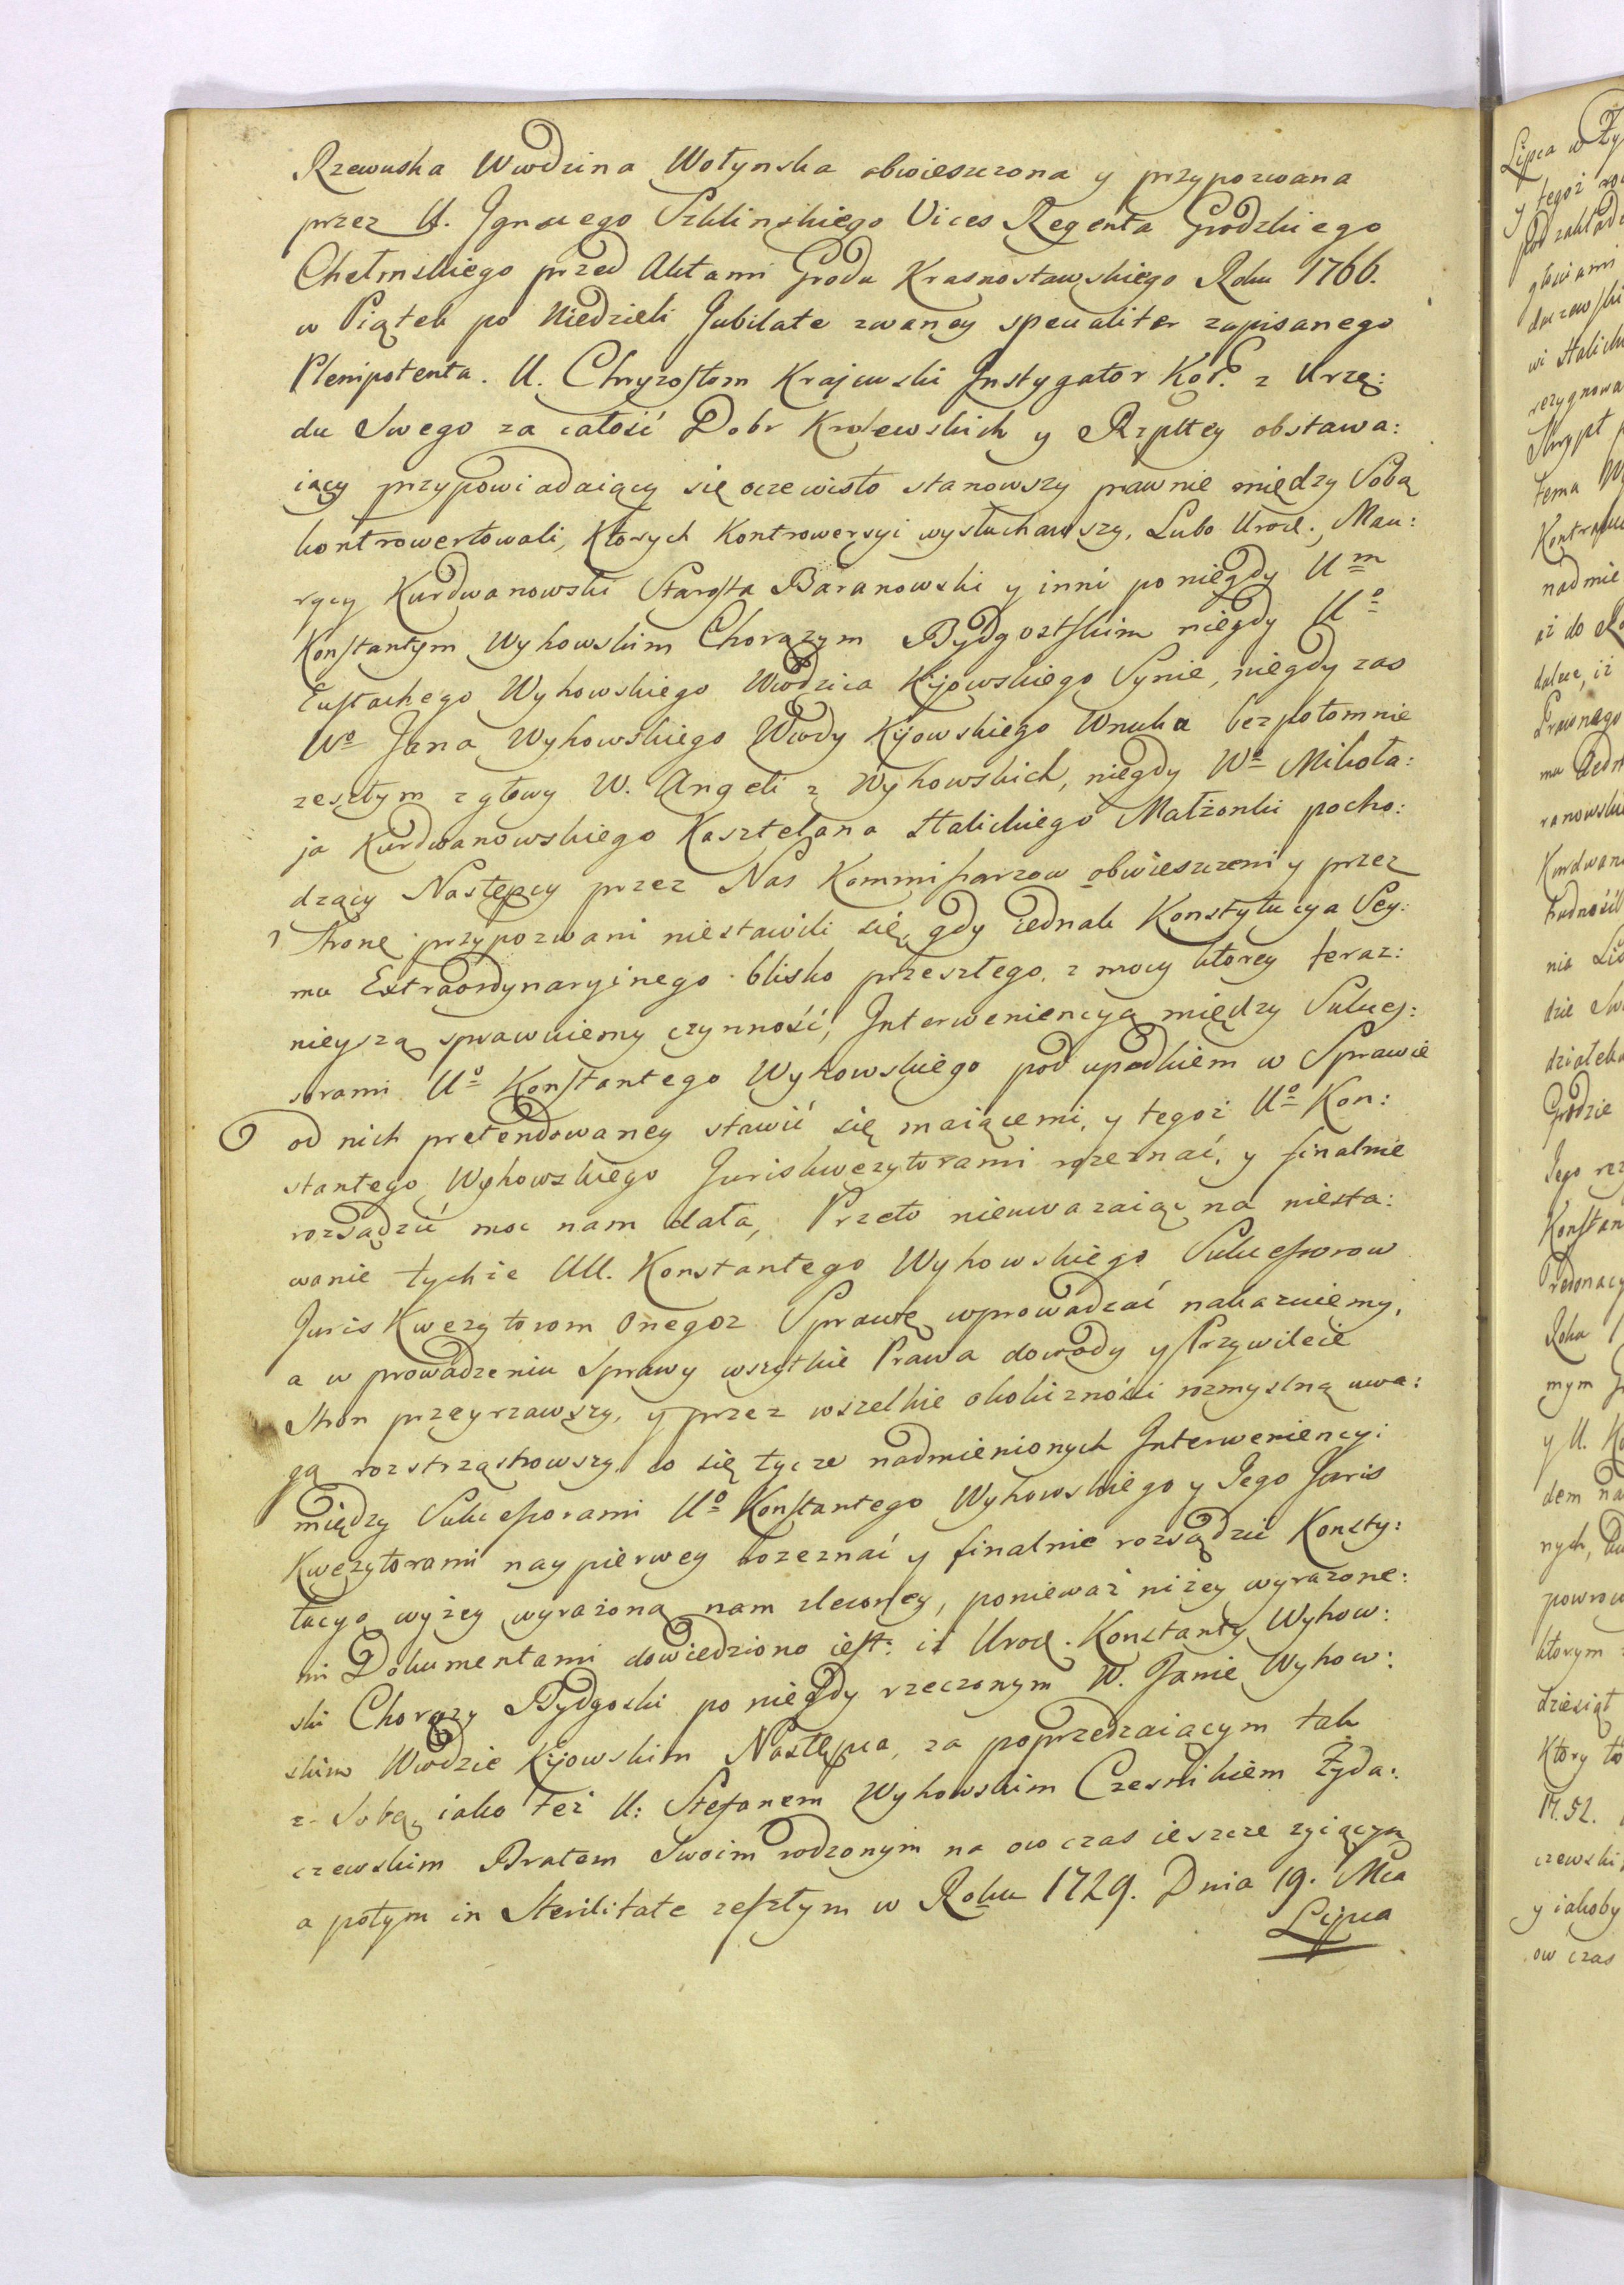 Rzewuska Wwdzina Wołynska obwieszczona y przypozwana
przez U. Ignacego Szklinskiego Vices Regenta Grodzkiego
Chełmskiego przed Aktami Grodu Krasnostawskiego Roku 1766.
w Piątek po Niedzieli Jubilate zwaney specialiter zapisanego
Plenipotenta. U. Chryzostom Krajewski Instygator Kor. z Urzę:
du Swego za całość Dobr Krolewskich y Rzpltey obstawa:
iący przypowiadaiący się oczewisto stanowszy prawnie między Sobą
kontrowertowali, Ktorych Kontrowersyi wysłuchawszy, Lubo Urod. Mau:
rycy Kurdwanowski Starosta Baranowski y inni po niegdy Um
Konstantym Wyhowskim Chorązym Bydgoztskim niegdy Uo
Eustachego Wyhowskiego Wwodzica Kijowskiego Synie, niegdy zas
Wo Jana Wyhowskiego Wwdy Kijowskiego Wnuka bezpotomnie
zeszłym z głowy W. Angeli z Wyhowskich, niegdy Wo Mikoła:
ja Kurdwanowskiego Kasztelana Halickiego Małżonki pocho:
dzący Następcy przez Nas Kommissarzow obwieszczeni y przez
Stronę przypozwani niestawili się, gdy iednak Konstytucya Sey:
mu Extraordynaryinego blisko przeszłego, z mocy ktorey teraz:
nieyszą sprawuiemy czynność, Interweniencyą między Sukces:
sorami Uo Konstantego Wyhowskiego pod upadkiem w Sprawie
od nich pretendowaney stawić się maiącemi, y tegoż Uo Kon:
stantego Wyhowskiego Juriskwezytorami rozeznać, y finalnie
rozsądzić moc nam dała, Przeto nieuwazaiąc na niesta:
wanie tychże UU. Konstantego Wyhowskiego Sukcessorow
Juris Kwezytorom Onegoz Sprawę wprowadzać nakazuiemy,
a w prowadzeniu Sprawy wszytkie Prawa dowody y Przywileie
Stron przeyrzawszy, y przez wszelkie okoliczności rozmyslną uwa:
gą rozstrząsnowszy, co się tycze nadmienionych Interweniencyi
między Sukcessorami Uo Konstantego Wyhowskiego y Jego Juris
Kwezytorami naypierwey rozeznać y finalnie rozsądzić Konsty:
tucyą wyżey wyrażoną nam zleconey, ponieważ niżey wyrażone:
mi Dokumentami dowiedziono iest: iż Urod. Konstanty Wyhow:
ski Chorązy Bydgoski po niegdy rzeczonym W. Janie Wyhow:
skim Wwodzie Kijowskim Następca, za poprzedzaiącym tak
z Sobą, iako też U: Stefanem Wyhowskim Czesnikiem Żyda:
czewskim Bratem Swoim rodzonym na ow czas ieszcze zyiącym
a potym in Sterilitate zeszłym w Roku 1729. Dnia 19. Mca
Lipca
Lipca w
y tegoż
pod zakład
wi Halick
rezygnowa
Skrypt
tema
nadmie
aż do
dalsze, iż
Prawnego
ranowski
Kurdwan
trudność
nia
dzie
działek
Grodzie
Jego
Konstan
Roku
mym
y U.
dem na
nych,
powrow
ktorym
dziesiąt
Ktory to
17.52.
czewski
y iakoby
ow czas